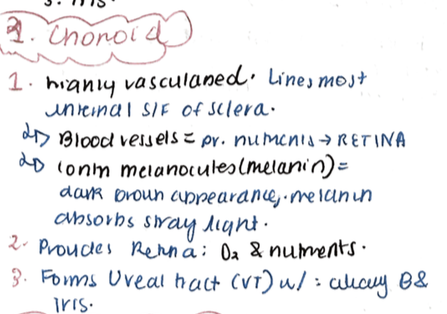 3. Iris
2. Choroid
1. Highly vascularied. Lines most
internal S/F of sclera.
Blood vessels = pr. nutrients → RETINA
contn melanocytes (melanin) =
dark brown appearance, melanin
absorbs stray light.
2. Provides Retina: O2 & nutrients.
3. Forms Uveal tract (VT) w/: ciliary B &
iris.